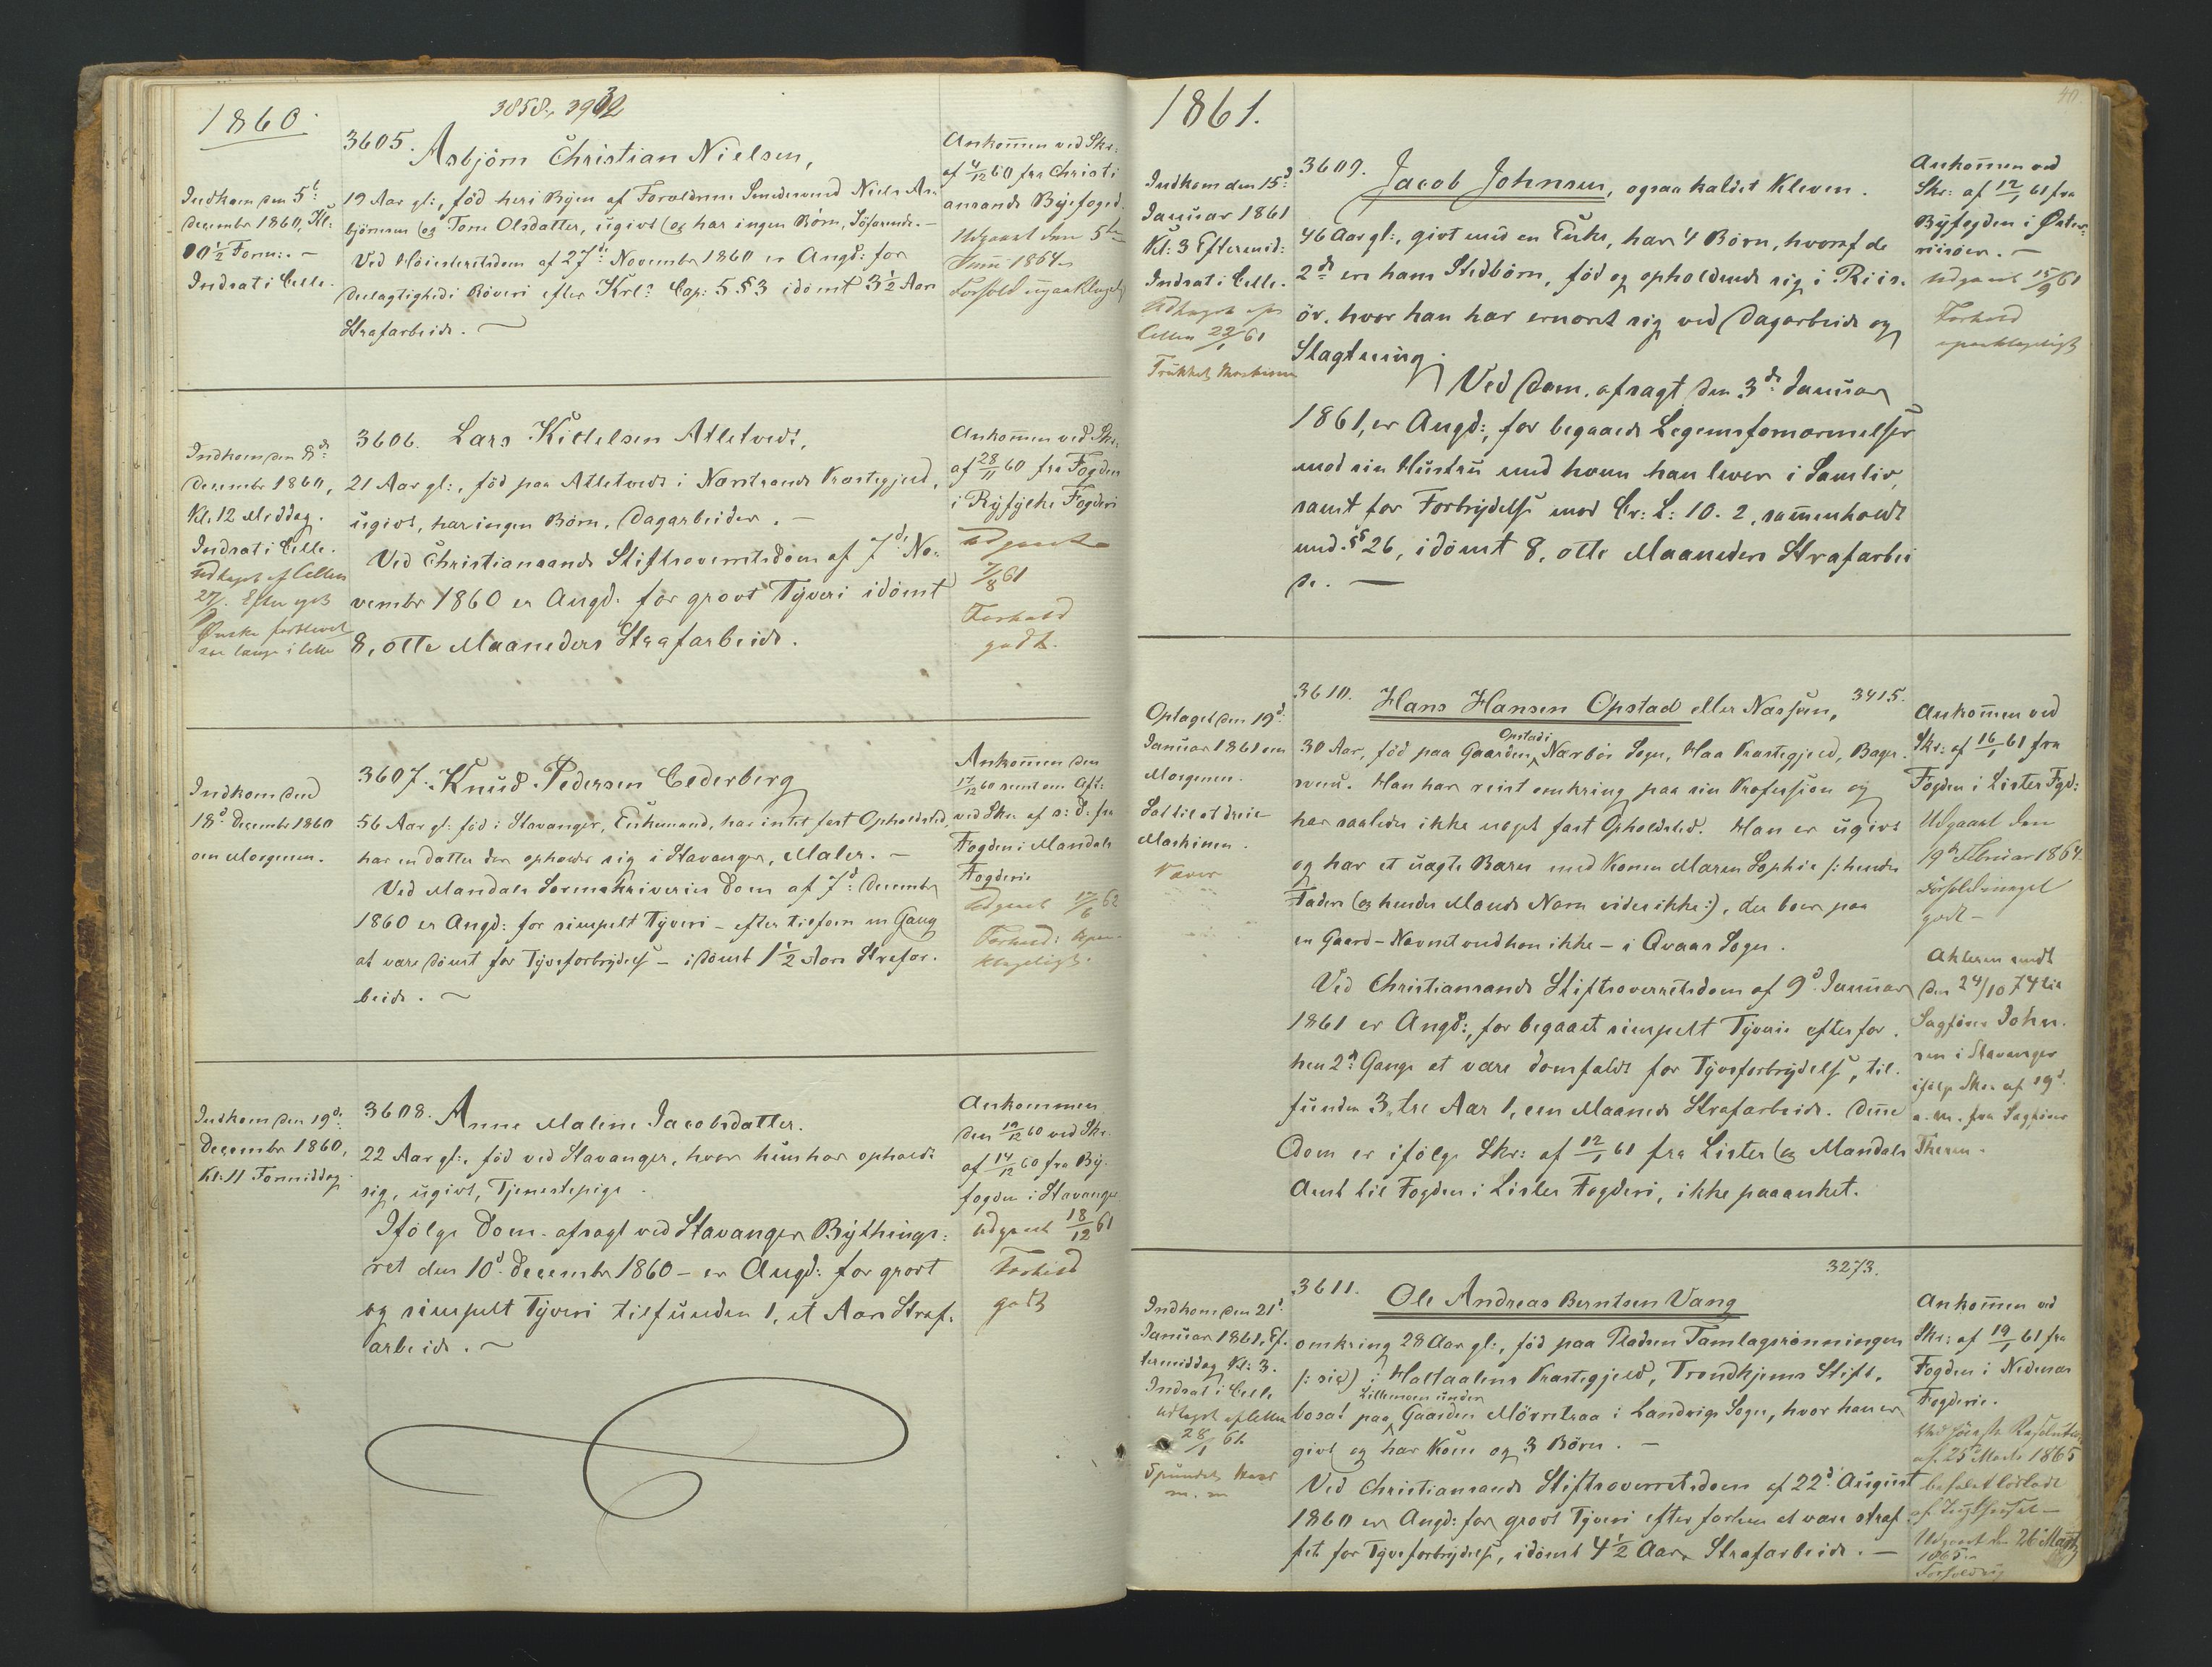 1860.
3858, 3932
3605. Asbjörn Christian Nielsen,
Indkom den 5t:
December 1860, Kl:
10 1/2 Form: . —
Indsat i Celle.
19 Aar gl:, föd heri Byen af Forældrene Smedesvend Niels As-
björnsen og Tone Olsdatter, ugivt og har ingen Börn, Söfarende. —
Ved Höiesteretsdom af 27d: November 1860 er Angd: for
Deelagtighed i Röveri efter Krl: Cap: 5 § 3 idömt 3 1/2 Aars
Strafarbeide. —
Ankommen ved Skr:
af 4/12 60 fra Christi-
ansands Byefoged.
Udgaaet den 5te
Juni 1864
Forhold upaaklageligt
Indkom den 8d:
December 1860,
Kl. 12 Middag.
Indsat i Celle.
Udtaget af Cellen
27/ Efter eget
Ønske forblevet
saa længe i Celle
3606. Lars Kittelsen Atletvedt,
21 Aar gl:, föd paa Atletvedt i Nærstrands Præstegjeld,
ugivt, har ingen Börn, Dagarbeider. —
Ved Christiansands Stiftsoverretsdom af 7d: No-
vember 1860 er Angd: for grovt Tyveri idömt
8, otte Maaneders Strafarbeide.
Ankommen ved Skr:
af 28/11 60 fra Fogden
i Ryfylke Fogderi
Udgaaet
7/8 61
Forhold
godt.
Indkom den
18d: December 1860
om Morgenen.
3607. Knud Pedersen Cederberg
56 Aar gl: föd i Stavanger, Enkemand, har intet fast Opholdssted,
har en Datter der opholder sig i Stavanger, Maler. —
Ved Mandals Sorenskriveries Dom af 7d: December
1860 er Angd: for simpelt Tyveri - efter tilforn en Gang
at være dömt for Tyvsforbrydelse - idömt 1 1/2 Aars Strafar-
beide. —
Ankommen den
17/12 60 sent om Aft:
ved Skr: af s: D: fra
Fogden i Mandals
Fogderie
Udgaaet 17/6 62
Forhold: upaa-
klageligt.
Indkom den 19d:
December 1860,
Kl: 11 Formiddag
3608. Anne Maline Jacobsdatter.
22 Aar gl:, föd ved Stavanger, hvor hun har opholdt
sig, ugivt, Tjenestepige.
Ifölge Dom - afsagt ved Stavanger Bythings-
ret den 10d: December 1860 - er Angd: for grovt
og simpelt Tyveri tilfunden 1, et Aars Straf-
arbeide. —
Ankommen
den 19/12 60 ved Skr.
af 14/12 60 fra By-
fogden i Stavanger
Udgaaet 18/12 61
Forhold
godt
1861.
40.
Indkom den 15d:
Januar 1861
Kl: 3 Eftermid:
Indsat i Celle.
Udtaget af
Cellen 22/1 61
Trukket Maskinen
3609. Jacob Johnsen, ogsaa kaldet Kleven.
46 Aar gl:, givt med en Enke, har 4 Börn, hvoraf de
2de ere hans Stedbörn, föd og opholdende sig i Riis-
ör, hvor han har ernæret sig ved Dagarbeide og
Slagtning.
Ved Dom, afsagt den 3d: Januar
1861, er Angd:, for begaaede Legemsfornærmelser
mod sin Hustru med hvem han lever i Samliv,
samt for Forbrydelse mod Cr: L: 10. 2, sammenholdt
med §§ 26, idömt 8, otte Maaneders Strafarbei-
de. —
Ankommen ved
Skr: af 12/1 61 fra
Byfogden i Øster-
riisöer. —
Udgaaet 15/9 61
Forhold
upaaklageligt
Optaget den 19d:
Januar 1861 om
Morgenen.
Sat til at dreie
Maskinen.
Væver
3610. Hans Hansen Opstad eller Nassen, 3415.
30 Aar, föd paa Gaarden Opstad i Nærböe Sogn, Haa Præstegjeld, Bager-
svend. Han har reist omkring paa sin Profession og
har saaledes ikke noget fast Opholdssted. Han er ugivt
og har et uægte Barn med Konen Maren Sophie /: hendes
Faders og hendes Mands Navn vides ikke :/, der boer paa
en Gaard - Navnet ved han ikke - i Qvaas Sogn.
Ved Christiansands Stiftsoverretsdom af 9d: Januar
1861 er Angd:, for begaaet simpelt Tyverie efter for-
hen 2de Gange at være domfældt for Tyvsforbrydelse, til-
funden 3, tre Aar 1, een Maaneds Strafarbeide. Denne
Dom er ifölge Skr: af 12/1 61 fra Lister og Mandals
Amt til Fogden i Lister Fogderi, ikke paaanket.
Ankommen ved
Skr: af 16/1 61 fra
Fogden i Lister Fgd:
Udgaaet den
19de Februar 1864.
Forhold meget
godt -
Akterne sendt
den 24/10 74 til
Sagförer John-
sen i Stavanger
ifölge Skr. af 19d.
s. M. fra Sagförer
Indkom den 21d:
Januar 1861, Ef-
termiddag Kl: 3.
Indsat i Celle
Udtaget af Cellen
28/1 61
Spundet
m. m
3273.
3611. Ole Andreas Berntsen Vang
omkring 28 Aar gl:, föd paa Pladsen Tamlagsrönningen
/: sic) i Haltaalens Præstegjeld, Trondhjems Stift,
bosat paa Lillemoen under Gaarden Mövretraa i Landvigs Sogn, hvor han er
givt og har Kone og 3 Börn. —
Ved Christiansands Stiftsoverretsdom af 22d: August
1860 er Angd: for grovt Tyveri efter forhen at være straf-
fet for Tyvsforbrydelse, idömt 4 1/2 Aars Strafarbeide. —
Ankommen ved
Skr: af 19/1 61 fra
Fogden i Nedenæs
Fogderie.
Ved Höieste Resolution
af 25de Marts 1865
befalet lösladt
af Tugthuset —
Udgaaet den 26 Marts
1865
Forhold